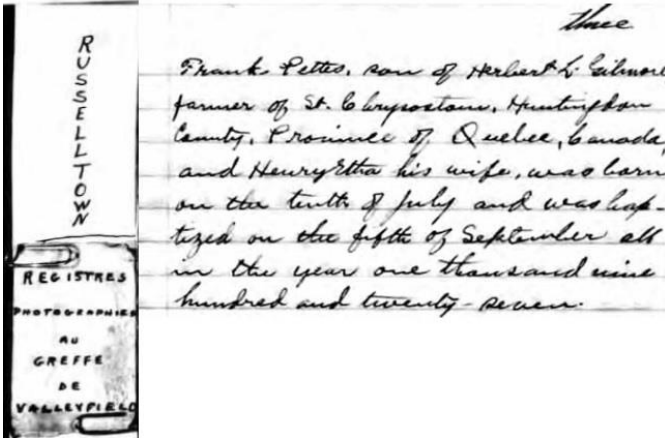 RUSSELLTOWN
REGISTRES
PHOTOGRAPHIES
AU
GREFFE
DE
VALLEYFIELD
three
Frank Pettes, son of Herbert L. Gilmore
farmer of St. Chrysostom, Huntingdon
County, Province of Quebec, Canada,
and HenryEtta his wife, was born
on the tenth of July and was bap-
tized on the fifth of September all
in the year one thousand nine
hundred and twenty-seven.